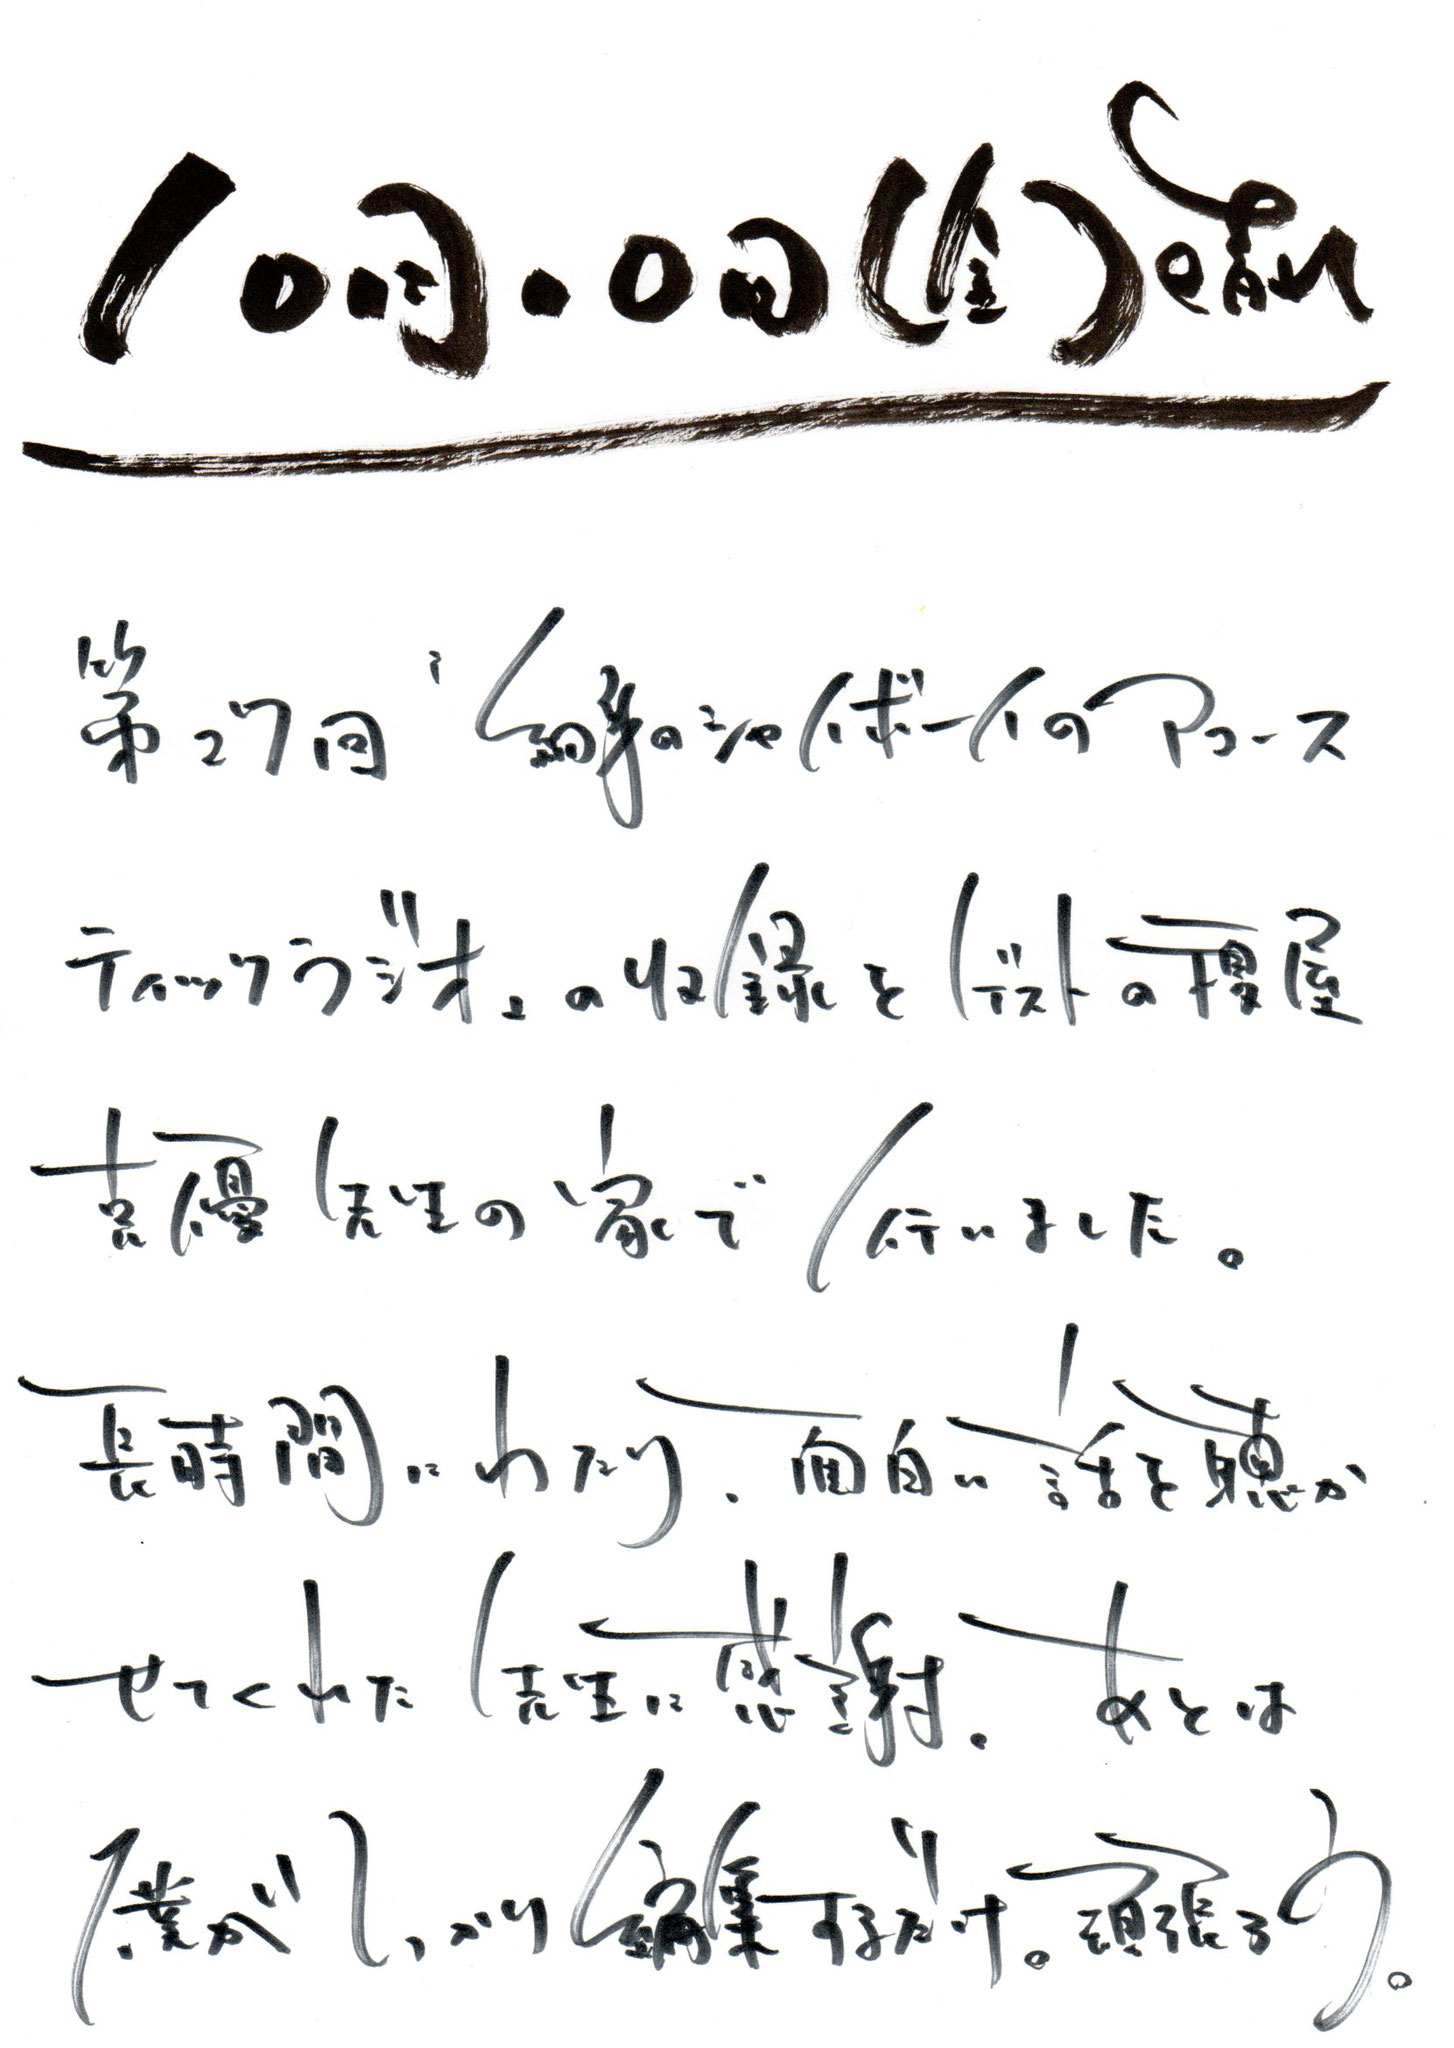 10月10日(金)晴れ
第27回『細身のシャイボーイのアコース
ティックラジオ』の収録をゲストの榎屋
克優先生の家で行いました。
長時間にわたり、面白い話を聴か
せてくれた先生に感謝。あとは
僕がしっかり編集するだけ。頑張ろう。